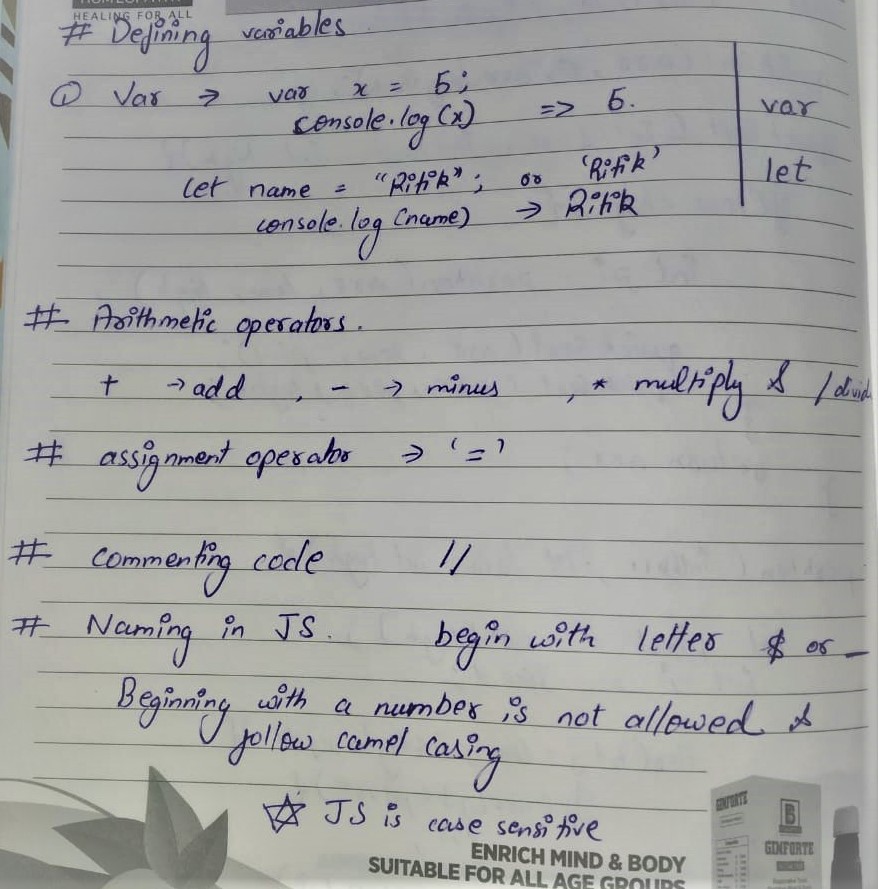 HEALING FOR ALL
# Defining variables
① Var → var x = 5;
console.log(x) => 5.
var
let name = "Ritik"; or 'Ritik'
let
console.log(name) → Ritik
# Arithmetic operators.
+ → add , - → minus , * multiply & / divid
# assignment operator → '='
# commenting code //
# Naming in JS. begin with letter $ or _
Beginning with a number is not allowed &
follow camel casing
☆ JS is case sensitive
GINFORTE
B
GINFORTE
ENRICH MIND & BODY
SUITABLE FOR ALL AGE GROUPS